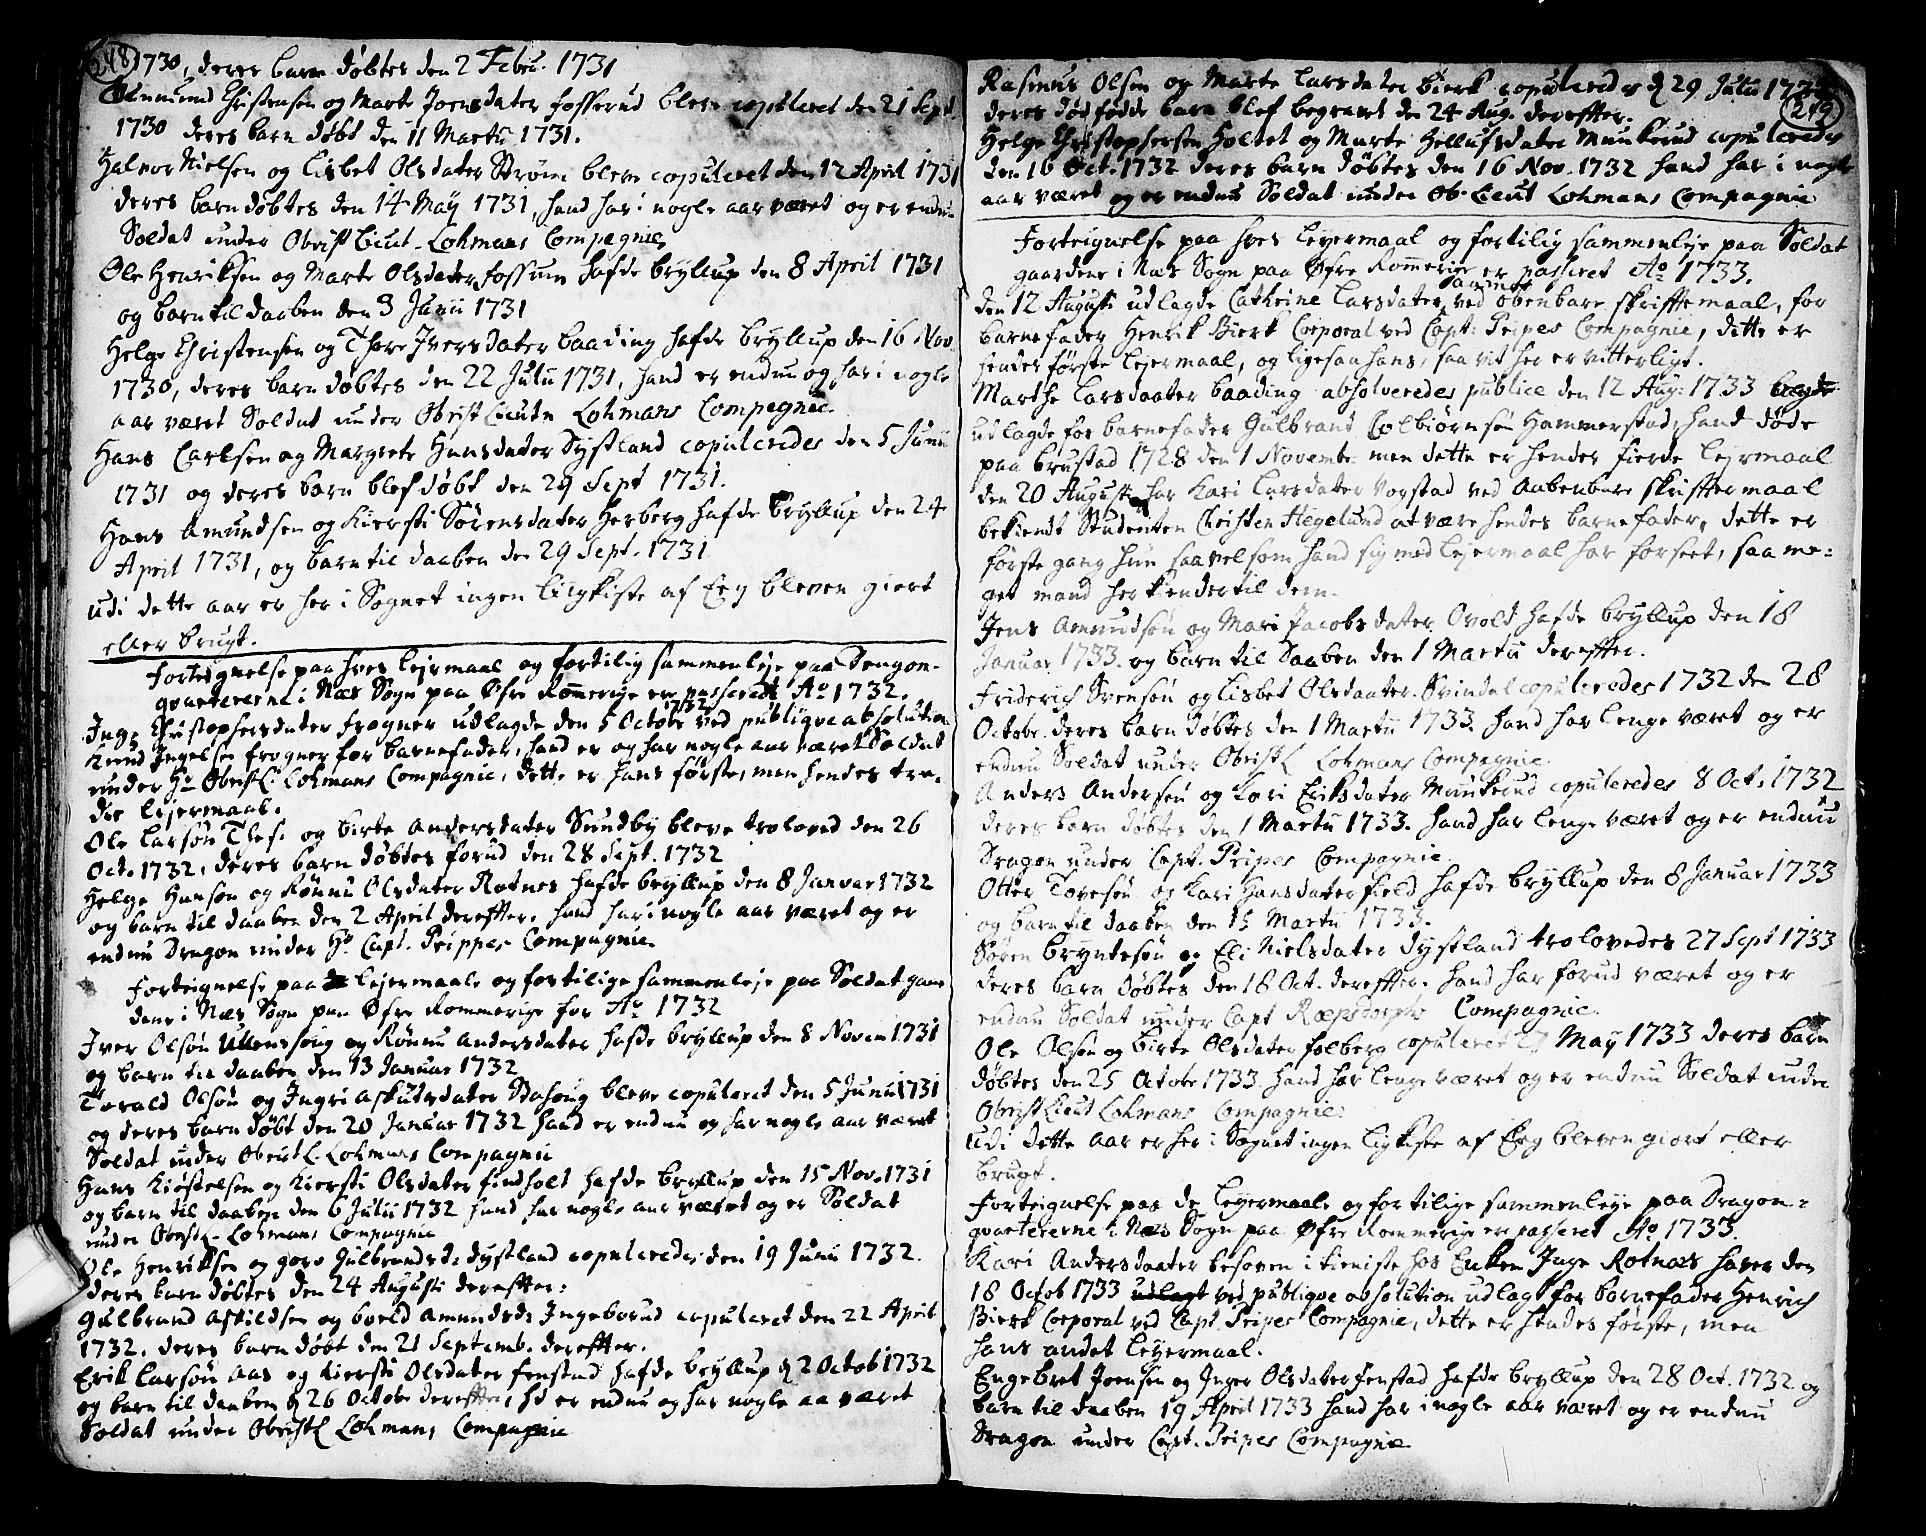 248
1730, deres barn döbtes den 2 Febru. 1731
Amund Christensen og Marte Joensdater fosserud bleve copuleret den 21 Sept.
1730 deres barn döbt den 11 Martii 1731.
Halvor Nielsen og Lisbet Olsdater Ström bleve copuleret den 12 April 1731
deres barn döbtes den 14 Maÿ 1731, hand har i nogle aar været og er endnu
Soldat under Obrist Lieut. Lohmans Compagnie
Ole Henriksen og Marte Olsdater fossum hafde brÿllup den 8 April 1731
og barn til daaben den 3 Junii 1731
Helge Christensen og Thore Iversdater baading hafde brÿllup den 16 Nov
1730, deres barn döbtes den 22 Julii 1731, hand er endnu og har i nogle
aar været Soldat under Obrist Lieutn Lohmans Compagnie.
Hans Carlsen og Margrete Hansdater Dÿstland copuleredes den 5 Junii
1731 og deres barn blef döbt den 29 Sept 1731.
Hans Amundsen og Kiersti Sörensdater Herberg hafde brÿllup den 24
April 1731, og barn til daaben den 29 Sept. 1731
Udi dette aar er her i Sognet ingen Liigkiste af Eeg bleven giort
eller brugt.
Fortegnelse paa hves Lejermaal og fortilig sammenleje paa Dragon-
qvartererne i Næs Sogn paa Öfre Rommerige er passeret Ao 1732.
Inge Christophersdater frogner udlagde den 5 Octobr 1732 ved publique absolution
Knud Ingelsen frogner for barnefader, hand er og har nogle aar været Soldat
under Hr Obristl: Lohmans Compagnie, dette er hans förste, men hendes tre-
die Lejermaal.
Ole Larsön Thes. og birte Andersdater Sundbÿ bleve troloved den 26
Oct. 1732, deres barn döbtes forud den 28 Sept. 1732
Helge Hansen og Rönnu Olsdater Rotnes hafde brÿllup den 8 Januar 1732
og barn til daaben den 2 April derefter. hand har i nogle aar været og er
endnu Dragon under Hr Capt. Prippes Compagnie.
Forteignelse paa Lejermaale og fortilige sammenleje paa Soldat gaar
dene i Næs Sogn paa Öfre Rommerige for Ao 1732
Iver Olsön Ullensoug og Rönnu Andersdater hafde brÿllup den 8 Novem 1731
og barn til daaben den 13 Januar 1732
Torald Olsön og Ingri Askutsdater bleve copuleret den 5 Junii 1731
og deres barn döbt den 20 Januar 1732 hand er endnu og har nogle aar været
Soldat under Obristl. Lohmans Compagnie
Hans Kiöstelsen og Kiersti Olsdater findholt hafde brÿllup den 15 Nov. 1731
og barn til daaben den 6 Julii 1732 hand har nogle aar været og er Soldat
under Obristl. Lohmans Compagnie
Ole Henriksen og goro Gulbrandsd: dÿstland copuleredes den 19 Junii 1732.
deres barn döbtes den 24 Augusti derefter:
Gulbrand Askildsen og boeld Amundsd: Ingeborud copuleret den 22 April
1732. deres barn döbt den 21 Septemb. derefter.
Erik Larsön Aas og Kiersti Olsdater fenstad hafde brÿllup d 2 Octob 1732
og barn til daaben d 26 Octobr derefter, hd er endnu og har nogle aa været
Soldat under Obristl Lohmans Compagnie
249
Rasmus Olsen og Marte Larsdater Bierk copuleredes d 29 Julii
deres dödfödde barn blef begravet den 24 Aug. derefter.
Helge Christophersen Holtet og Marte Hellufsdater Munkerud copuleredes
den 16 Oct. 1732 deres barn döbtes den 16 Nov. 1732 hand har i nogle
aar været og er endnu Soldat under Ob. Lieut Lohmans Compagnie
Forteignelse paa hves Lejermaal og fortilig sammenleje paa Soldat
gaardene i Næs Sogn paa Öfre Rommerige er passeret Ao 1733.
den 12 Augusti udlagde Cathrine Larsdater ved obenbare skriftemaal, for
barnefader Henrik Bierk Corporal ved Capt: Pripes Compagnie, dette er
hendes förste Lejermaal, og ligesaa hans, saa vit her er vitterligt.
Marthe Larsdaater baading absolveredes publice den 12 Aug: 1733
udlagde for barnefader Gulbrand Colbiörnsön Hammerstad, hand döde
paa brustad 1728 den 1 Novembr. men dette er hendes fierde Lejrmaal
den 20 Augusti har Kari Larsdater Vorstad ved Aabenbare skriftermaal
bekiendt Studenten Christen Hegelund at være hendes barnefader, dette er
förste gang hun saavelsom hand sig med Lejermaal har forseet, saa me-
get mand her kiender til dem.
Jens Amundsön og Mari Jacobsdater Ovold hafde brÿllup den 18
Januar 1733. og barn til Daaben den 1 Martii derefter.
Friderich Svensön og Lisbet Olsdaater Svindal copuleredes 1732 den 28
Octobr. deres barn döbtes den 1 Martii 1733. hand har lenge været og er
endnu Soldat under Obristl Lohmans Compagnie.
Anders Andersön og Kari Eriksdater Munkerud copuleredes 8 Oct. 1732
deres barn döbtes den 1 Martii 1733. hand har lenge været og er endnu
Dragon under Capt. Pripes Compagnie.
Otter Toresön og Kari Hansdater field hafde brÿllup den 8 Januar 1733
og barn til daaben den 15 Martii 1733.
Sören Brÿntesön og Eli Nielsdater dÿstland trolovedes 27 Sept 1733
deres barn döbtes den 18 Oct. derefter. hand har forud været og er
endnu Soldat under Capt Compagnie.
Ole Olsön og Birte Olsdater folberg copuleret 27 Maÿ 1733 deres barn
döbtes den 25 Octobr 1733. hand har lenge været og er endnu Soldat under
Obrist Lieut Lohmans Compagnie.
Udi dette Aar er her i Sognet ingen Ligkiste af Eeg bleven giort eller
brugt.
Forteignelse paa de Lejermaale og fortilige sammenleje paa Dragon-
qvartererne i Næs Sogn paa Öfre Rommerige er passeret Ao 1733.
Kari Andersdaater besoven i tieniste hos Enken Inge Rotnæs haver den
18 Octob 1733 udlagt ved publique absolution udlagt for barnefader Henrich
Bierk Corporal ved Capt Pripes Compagnie, dette er hendes förste, men
hans andet Lejermaal.
Engebret Joensen og Inger Olsdater fenstad hafde brÿllup den 28 Oct. 1732 og
barn til daaben 19 April 1733 hand har i nogle aar været og er endnu
Dragon under Capt. Pripes Compagnie